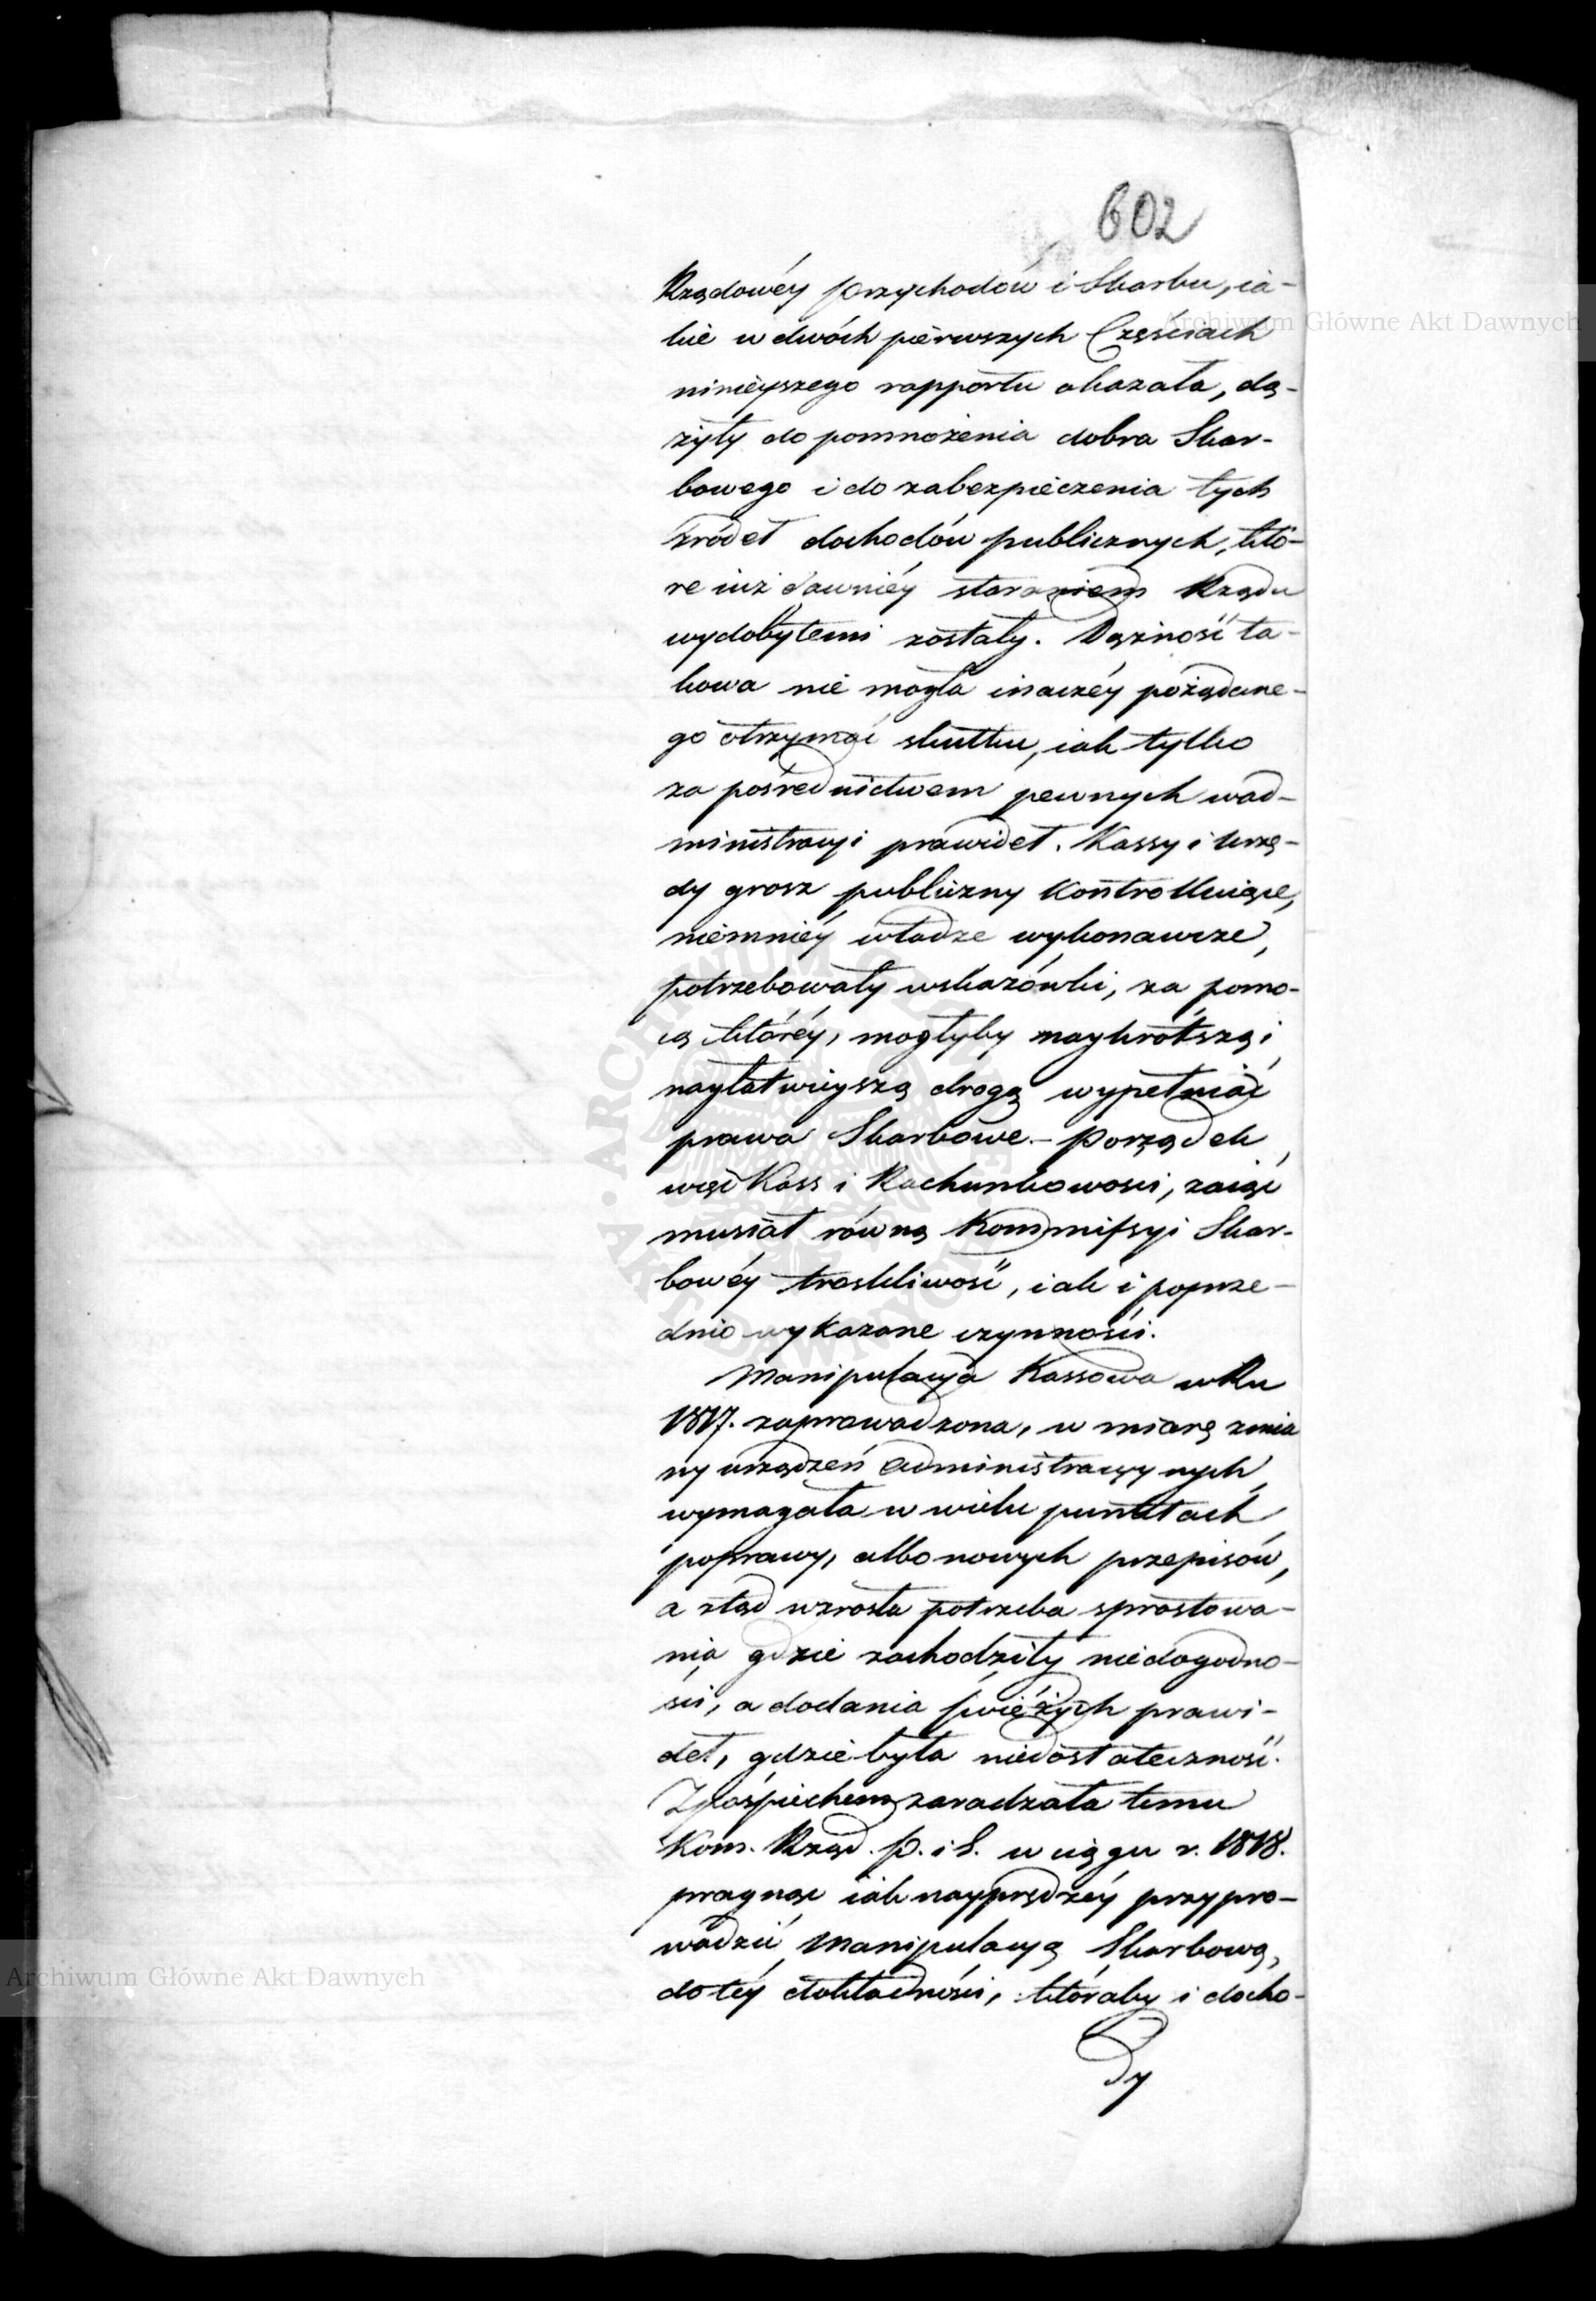 602
Rządowéy przychodów i Skarbu, ia-
kie w dwóch piérwszych Częściach
ninieyszego rapportu okazała, dą-
żyły do pomnożenia dobra Skar-
bowego i do zabezpieczenia tych
źródeł dochodów publicznych, któ-
re iuż dawniéy staraniem Rządu
wydobytemi zostały. Dążność ta-
kowa nie mogła inaczéy pożądane-
go otrzymać skutku, iak tylko
za pośrednictwem pewnych w ad-
ministracyi prawideł. Kassy i urzę-
dy grosz publiczny kontrolluiące,
niemniéy władze wykonawcze,
potrzebowały wskazówki, za pomo-
cą któréy, mogłyby naykrótszą i
nayłatwieyszą drogą wypełniać
prawa Skarbowe. – Porządek
więc Kass i Rachunkowości, zaiąć
musiał równą Kommissyi Skar-
bowéy troskliwość, iak i poprze-
dnio wykazane czynności.
Manipulacyia Kassowa w Ru
1817. zaprowadzona, w miarę zmia
ny urządzeń administracyynych,
wymagała w wielu punktach
poprawy, albo nowych przepisów,
a ztąd wzrosła potrzeba sprostowa-
nia gdzie zachodziły niedogodno-
ści, a dodania świéżych prawi-
deł, gdzie była niedostateczność.
Z pośpiechem zaradzała temu
Kom. Rząd. P. i S. w ciągu r. 1818.
pragnąc iak nayprędzéy przypro-
wadzić Manipulacyą Skarbową,
do téy dokładności, któraby i docho-
dy
Archiwum Główne Akt Dawnych
Archiwum Główne Akt Dawnych
ARCHIWUM GŁÓWNE AKT DAWNYCH